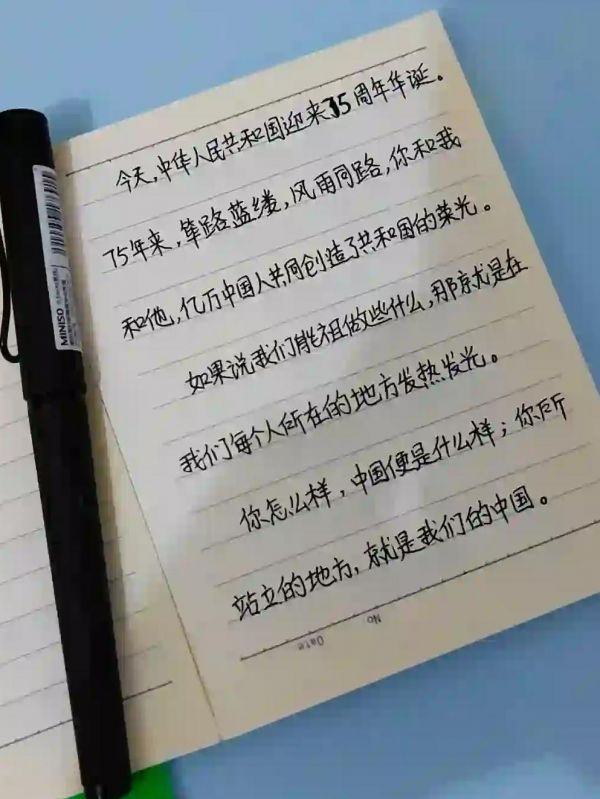 今天，中华人民共和国迎来75周年华诞。
75年来，筚路蓝缕，风雨同路，你和我
和他，亿万中国人共同创造了共和国的荣光。
如果说我们能祖做些什么，那就是在
我们每个人所在的地方发热发光。
你怎么样，中国便是什么样；你所
站立的地方，就是我们的中国。
No
Date
MINISO